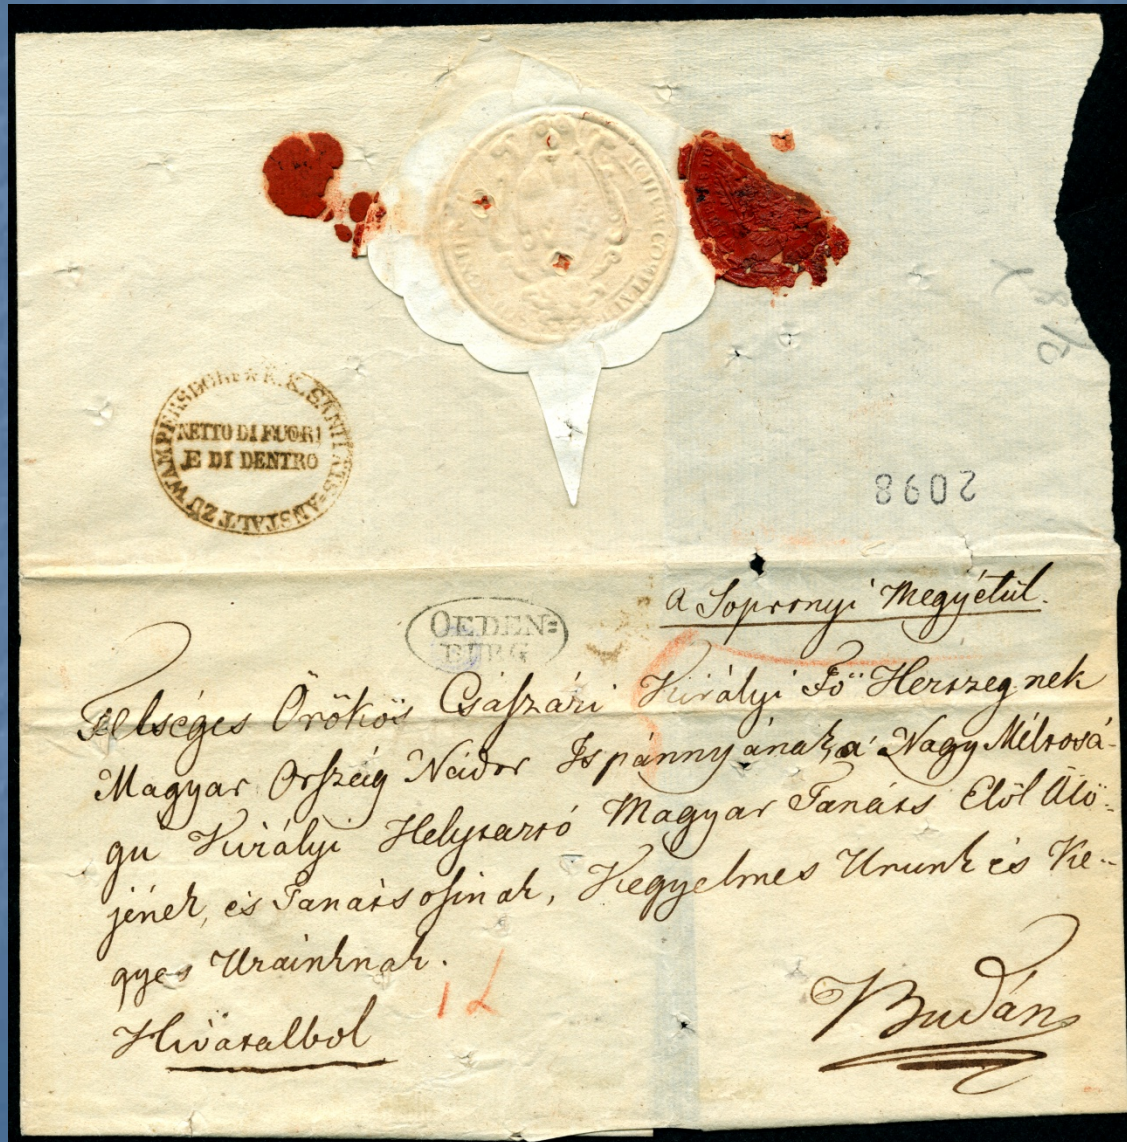 K.K. SANITATS=ANSTALT ZU WAMPERSDORF
NETTO DI FUORI
E DI DENTRO
2098
a Sopronyi Megyétül.
OEDEN=
BURG
Felséges Örökös Császári Királyi Fő Herczegnek
Magyar Ország Nádor Ispánnyának, a' Nagy Méltosá-
gu Királyi Helytartó Magyar Tanáts Elöl Ülö-
jének, és Tanátsosinak, Kegyelmes Urunk és Ke-
gyes Urainknak.
Hivatalbol
Budán